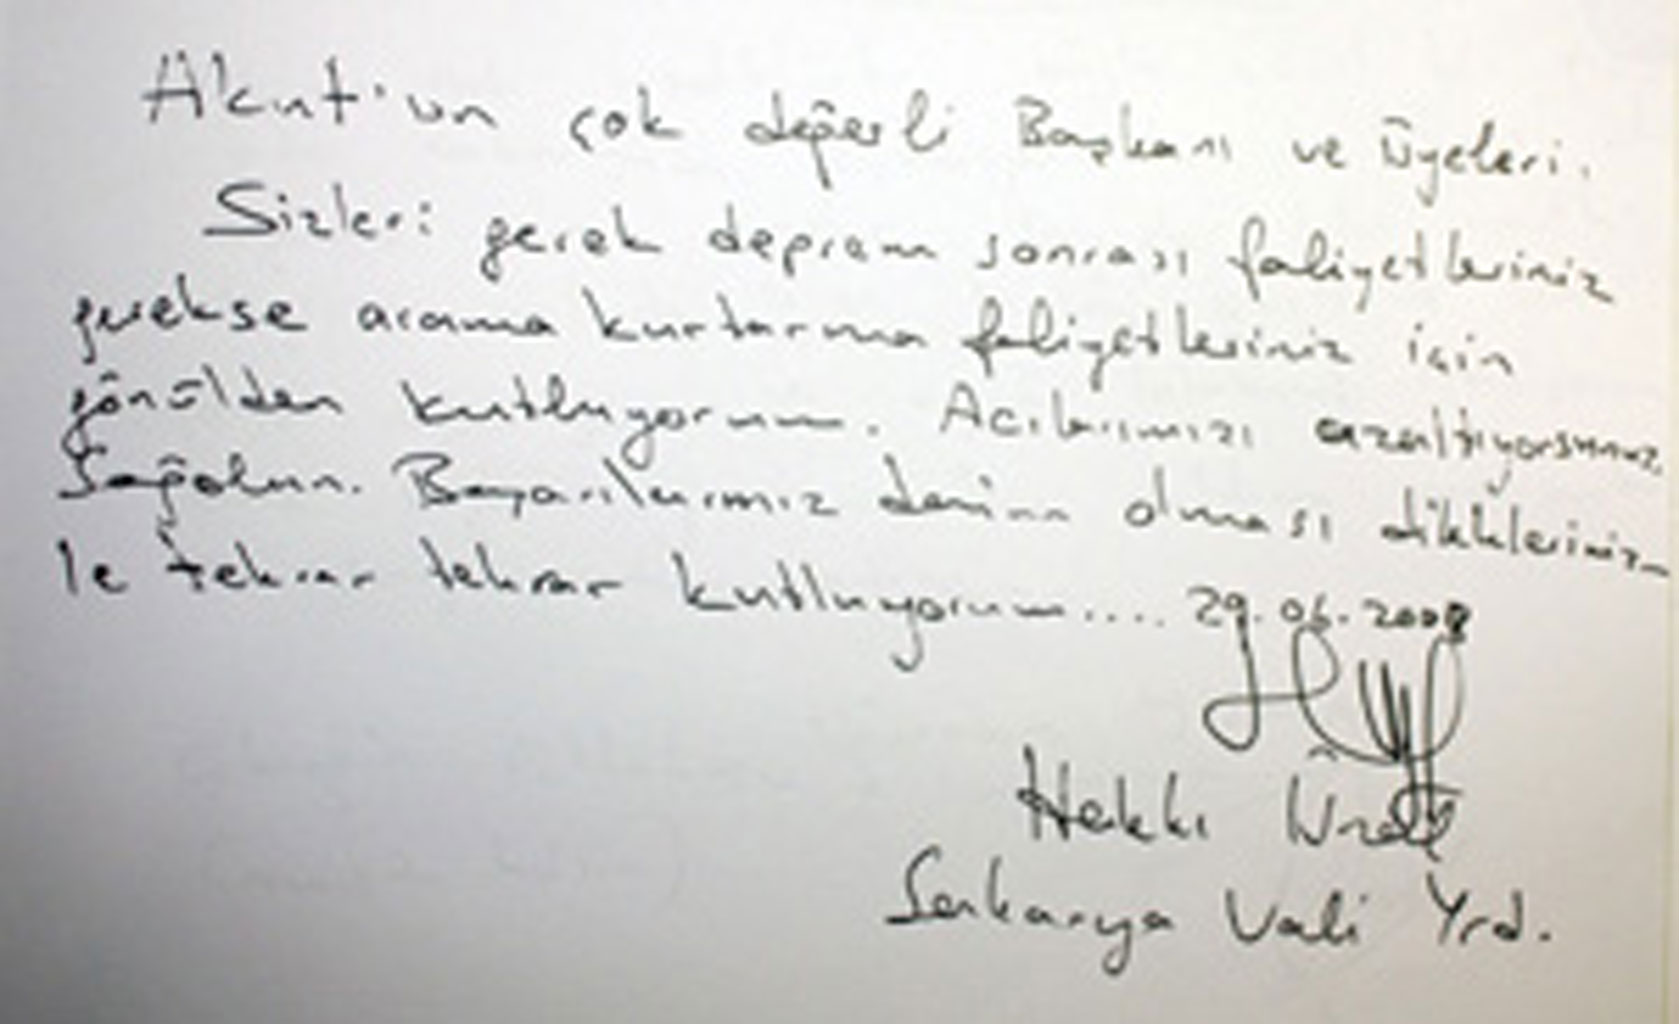 Akut'un çok değerli Başkanı ve Üyeleri.
Sizleri gerek deprem sonrası faliyetleriniz
gerekse arama kurtarma faliyetleriniz için
gönülden kutluyorum. Acılarımızı azaltıyorsunuz.
Sağolun. Başarılarımız daim olması
le tekrar tekrar kutluyorum.... 29.06.2008
Hakkı
Sakarya Vali Yrd.